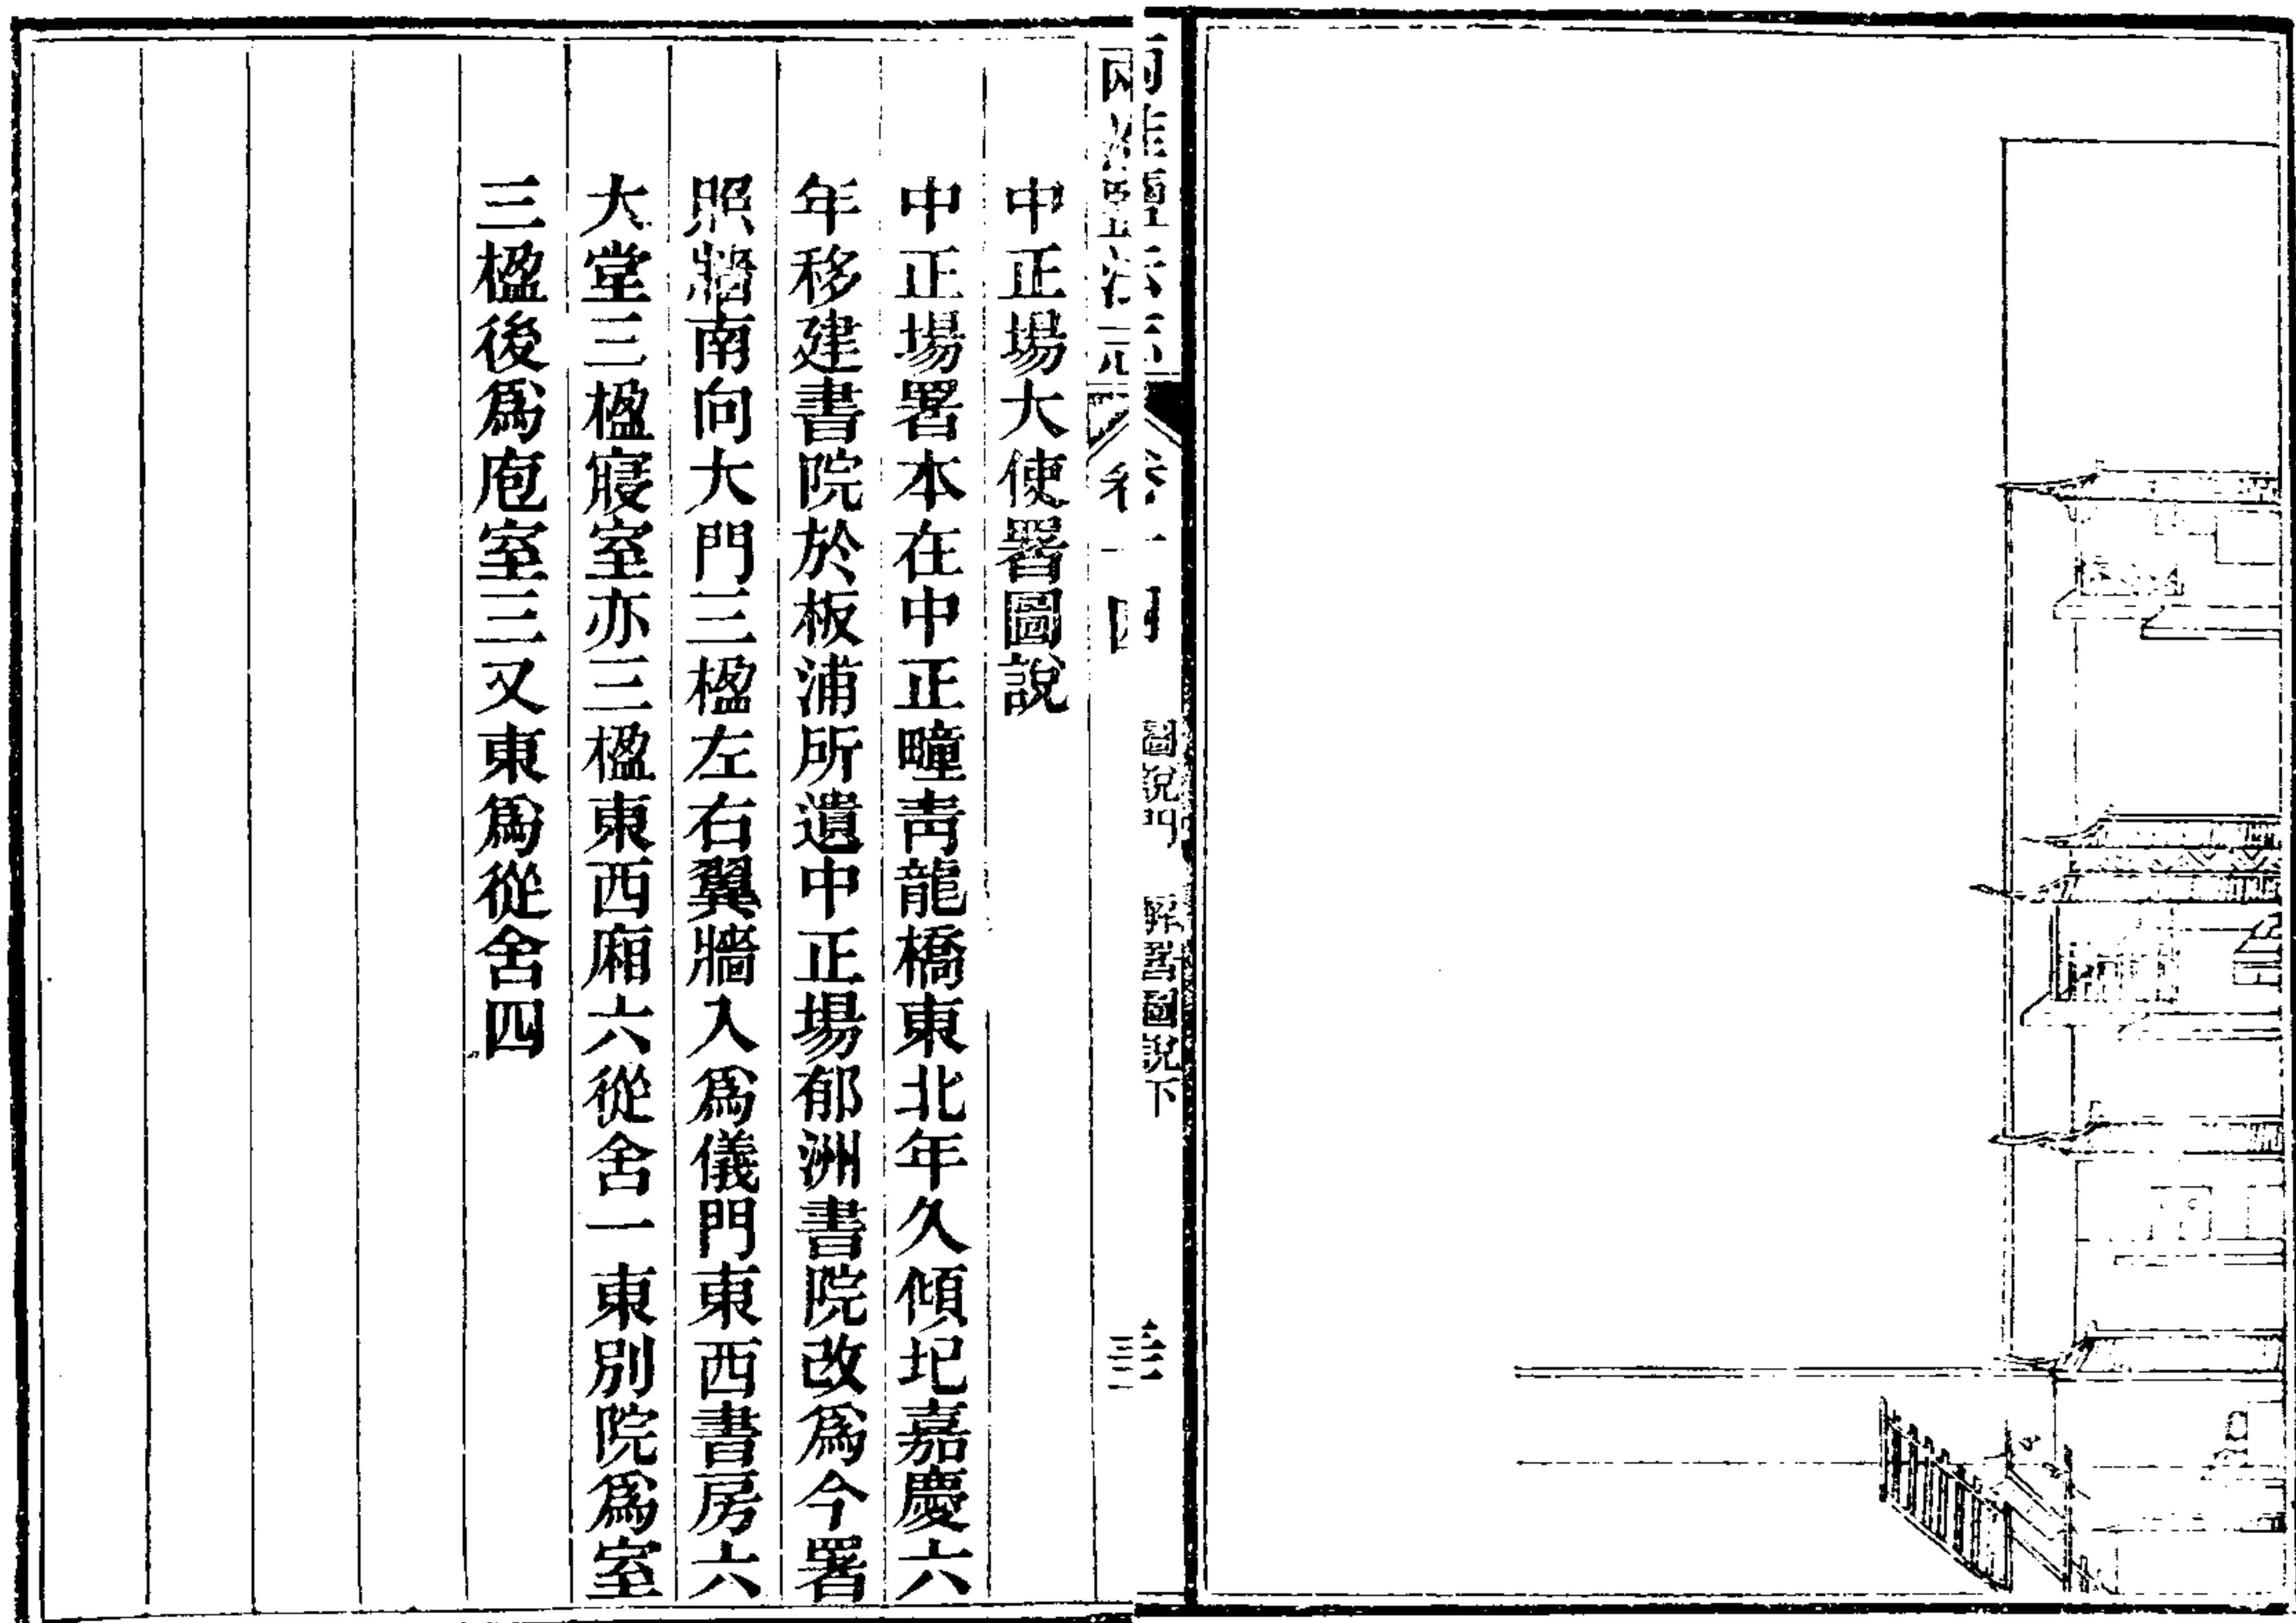 兩淮鹽法志 卷十四 圖說門 廨署圖說下 三十二
中正場大使署圖說
中正場署本在中正疃青龍橋東北年久傾圮嘉慶六
年移建書院於板浦所遺中正場郁洲書院改爲今署
照牆南向大門三楹左右翼牆入爲儀門東西書房六
大堂三楹寢室亦三楹東西廂六從舍一東別院爲室
三楹後爲庖室三又東爲從舍四